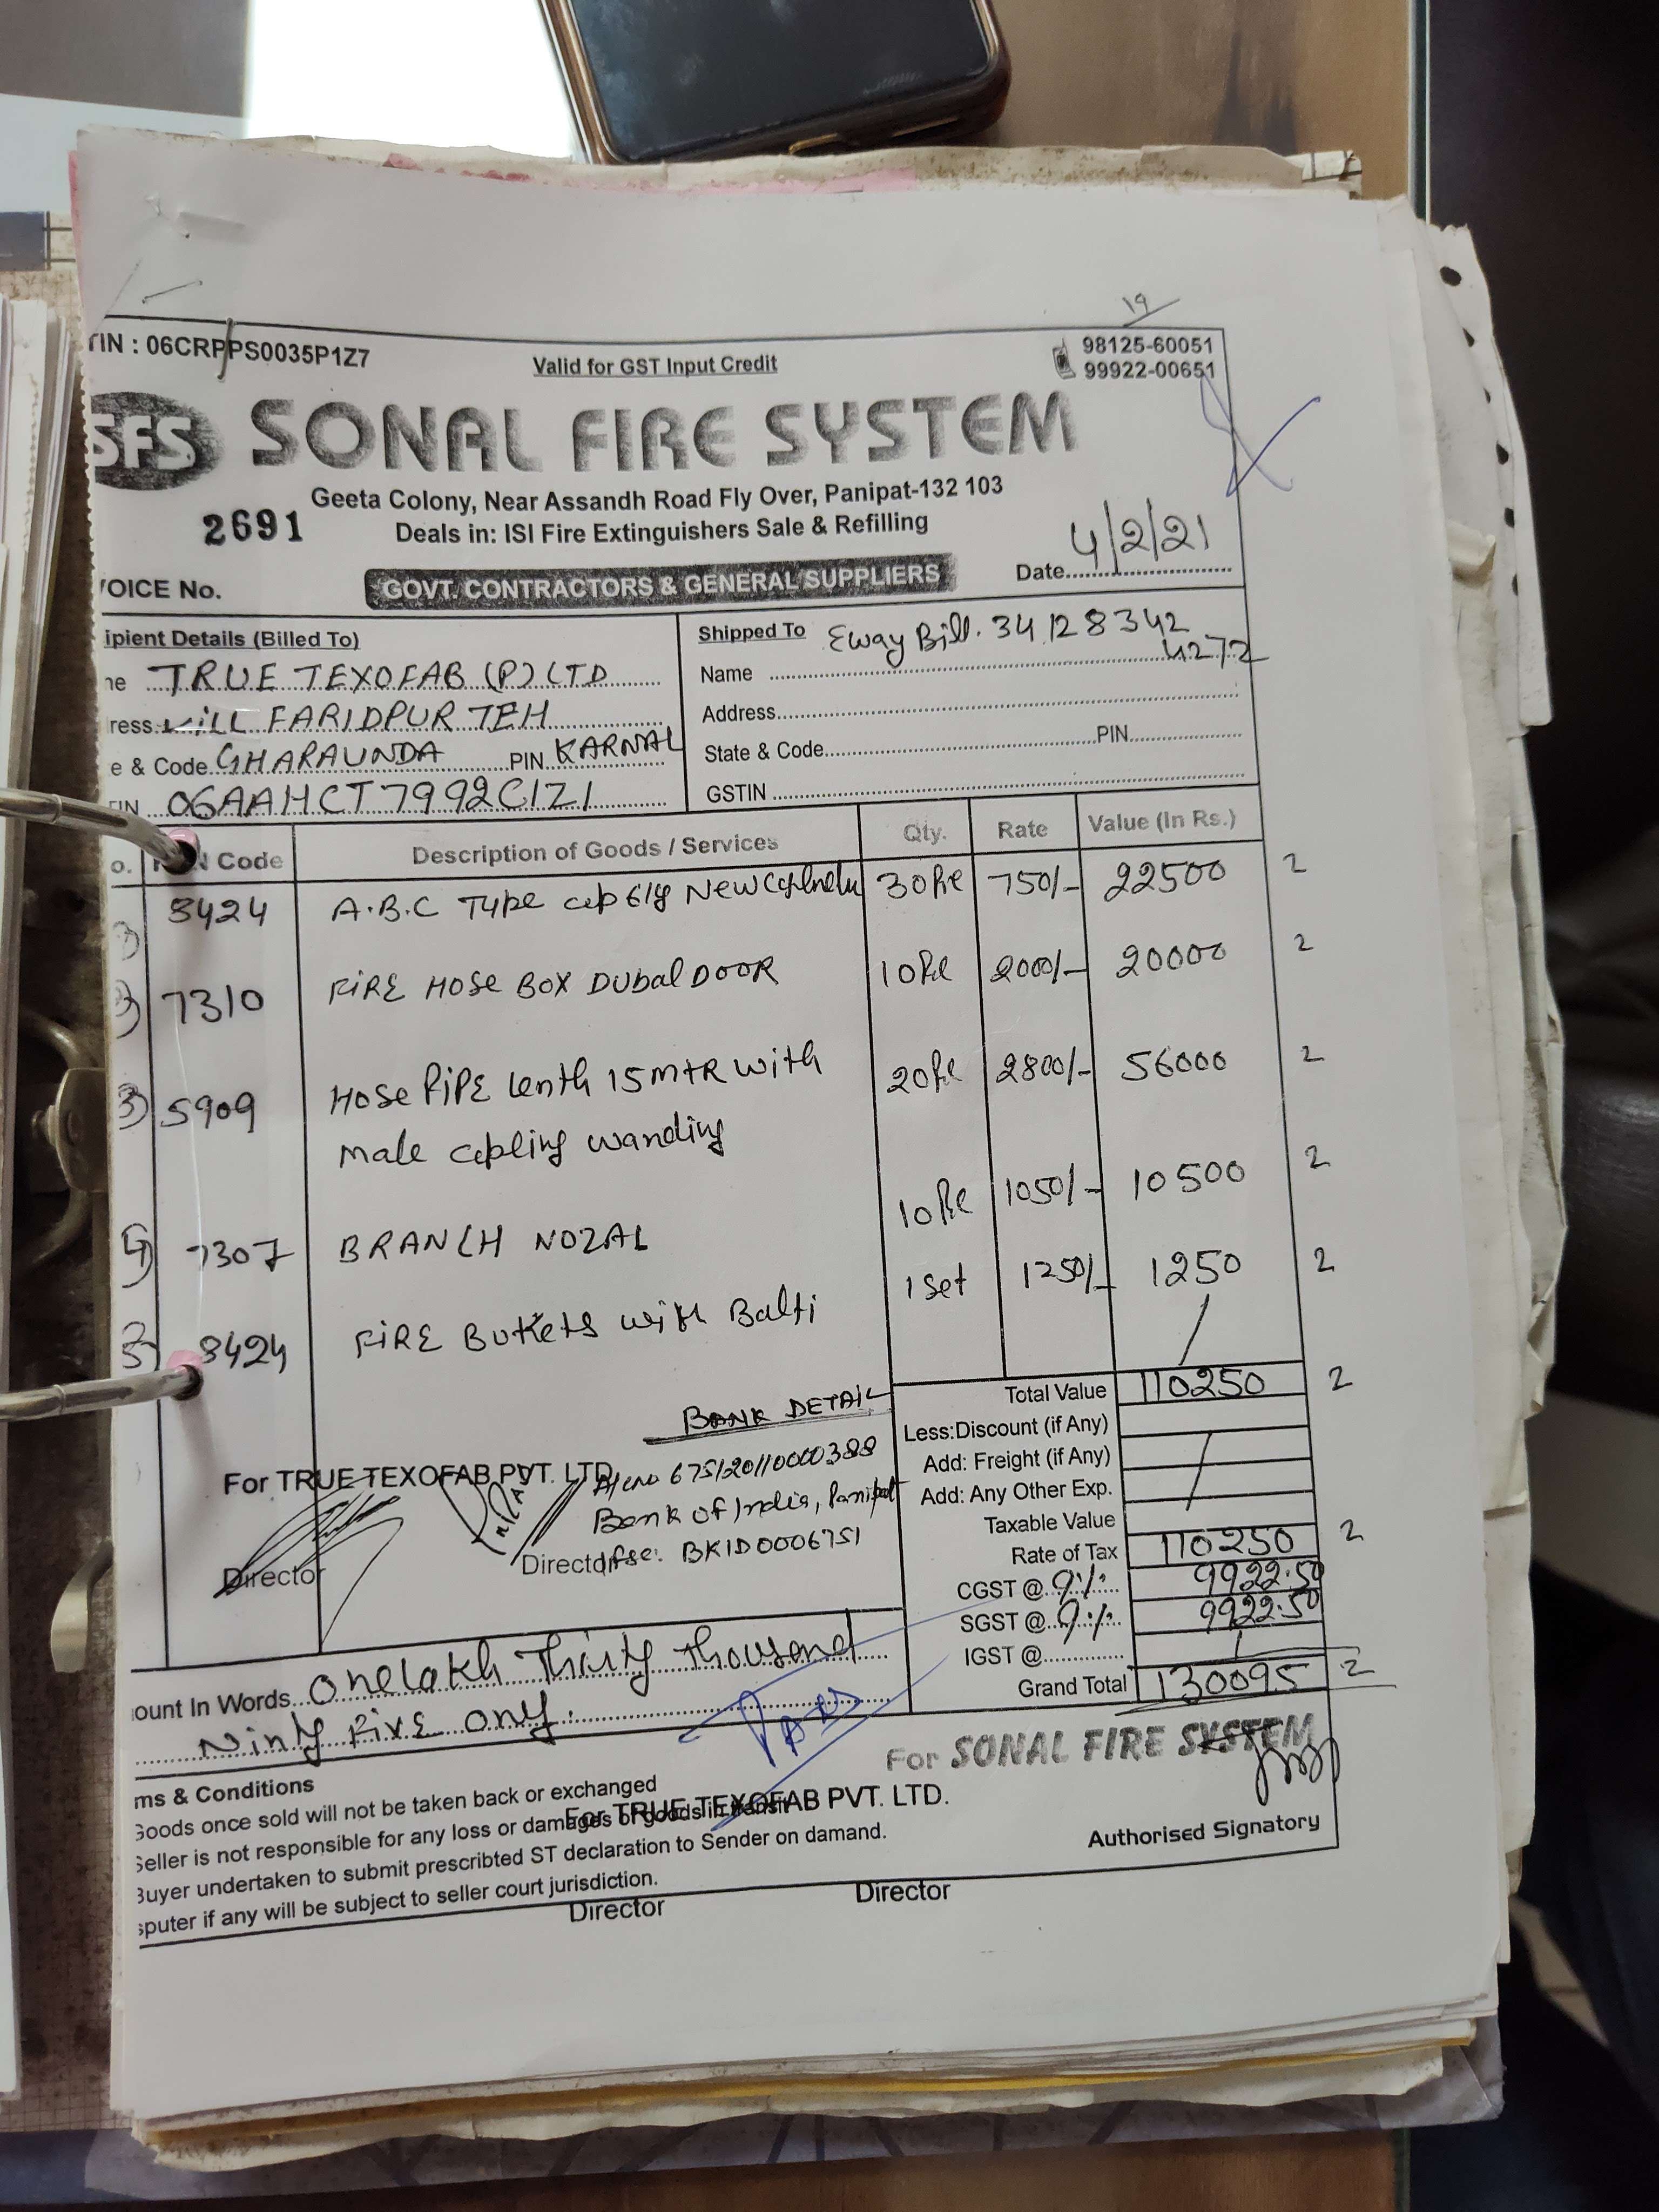 19
TIN : 06CRPPS0035P1Z7
Valid for GST Input Credit
98125-60051
99922-00651
SFS SONAL FIRE SYSTEM
Geeta Colony, Near Assandh Road Fly Over, Panipat-132 103
2691
Deals in: ISI Fire Extinguishers Sale & Refilling
4/2/21
VOICE No.
GOVT. CONTRACTORS & GENERAL SUPPLIERS
Date
ipient Details (Billed To)
ne TRUE TEXOFAB (P) LTD
ress ViLL FARIDPUR TEH
e & Code GHARAUNDA PIN KARNAL
TIN 06AAHCT7992C1Z1
Shipped To Eway Bill. 34 128342
4272
Name
Address
State & Code PIN
GSTIN
o. HSN Code Description of Goods / Services Qty. Rate Value (In Rs.)
8424 A.B.C Type New 30 750/- 22500 2
7310 FiRE HOSe BOX DUbal DOOR 10 2000/- 20000 2
3) 5909 HOSe PiPE lenth 15 MtR with 20 2800/- 56000 2
Male cupling wanding
4) 7307 BRANCH NOZAL 10 1050/- 10500 2
5) 8424 FiRE BuKets with Balti 1 Set 1250/- 1250 2
Total Value 110250 2
Less:Discount (if Any)
Add: Freight (if Any)
Add: Any Other Exp.
Taxable Value
Rate of Tax 110250 2
CGST @ 9% 9922.50
SGST @ 9% 9922.50
IGST @
Grand Total 130095 2
BANK DETAIL
A/c no 675120110000388
Bank of India, Panipat
Ifsc: BKID0006751
For TRUE TEXOFAB PVT. LTD.
Director
Director
ount In Words One lakh Thirty Thousand
Ninty Five only.
For SONAL FIRE SYSTEM
ms & Conditions
Goods once sold will not be taken back or exchanged
Seller is not responsible for any loss or damages of goods in transit
Buyer undertaken to submit prescribted ST declaration to Sender on damand.
sputer if any will be subject to seller court jurisdiction.
For TRUE TEXOFAB PVT. LTD.
Authorised Signatory
Director
Director